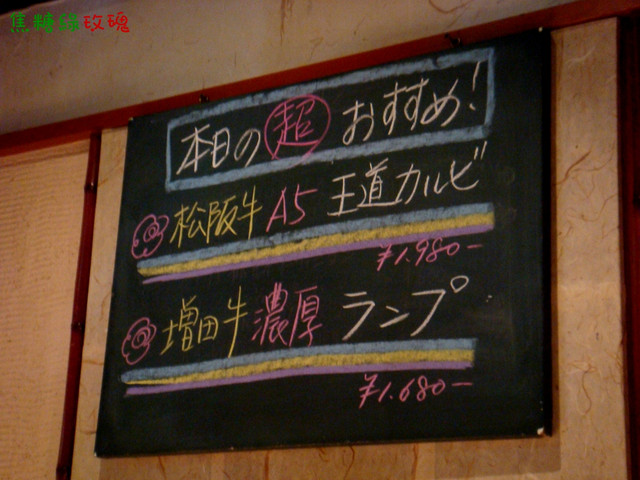 焦糖綠玫瑰
本日の超おすすめ!
松阪牛A5王道カルビ
¥1.980-
増田牛濃厚ランプ
¥1.680-